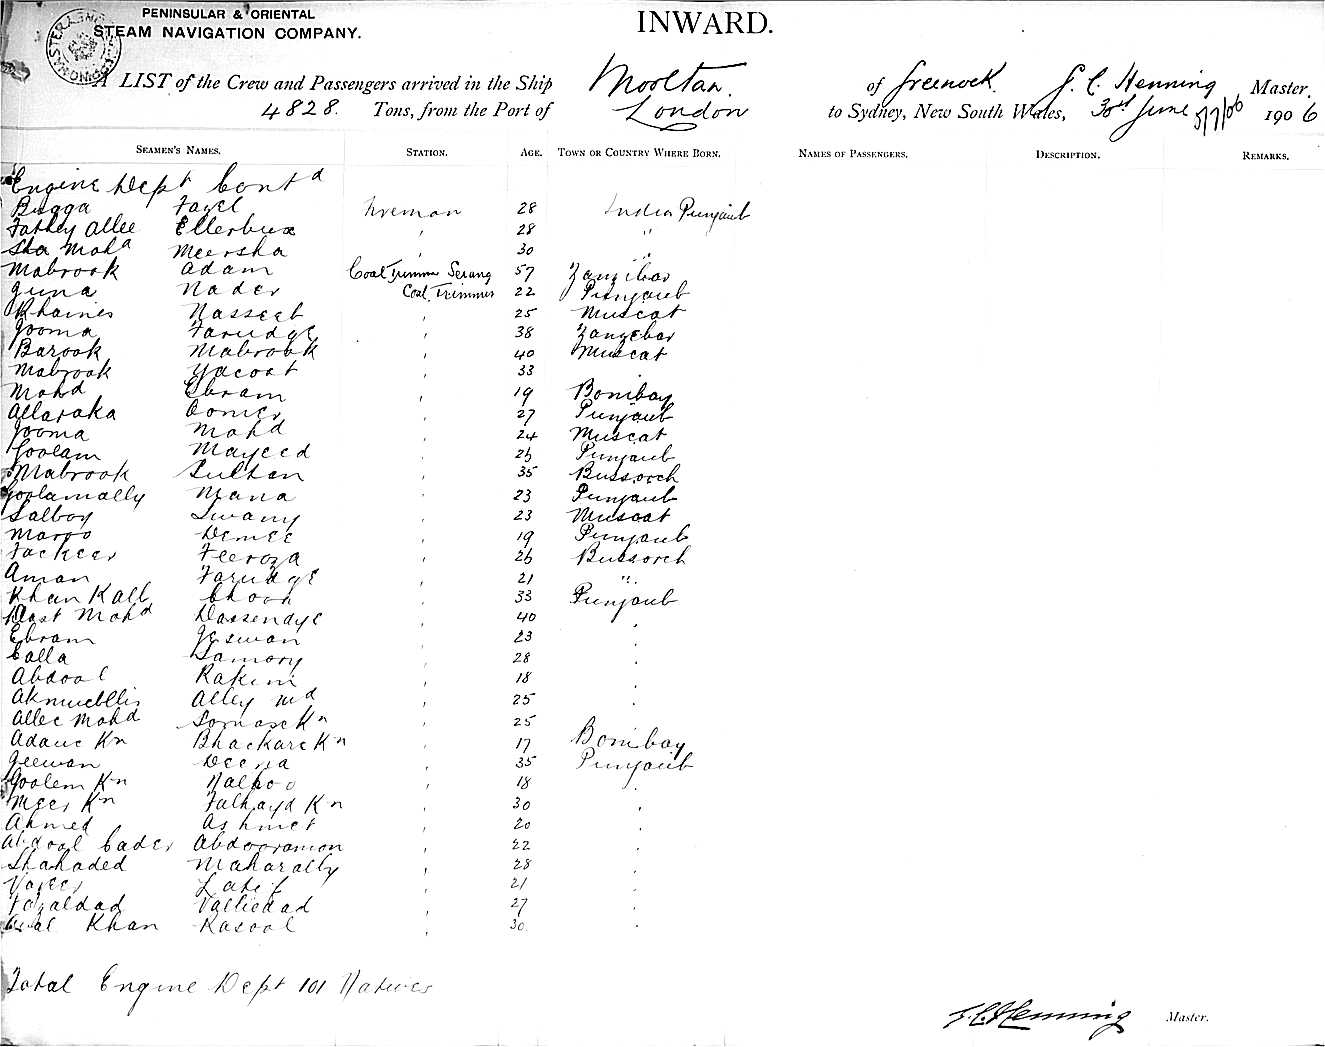 PENINSULAR & ORIENTAL
STEAM NAVIGATION COMPANY.
INWARD.
A LIST of the Crew and Passengers arrived in the Ship Mooltan. of Greenock. Henning Master.
4828. Tons, from the Port of London to Sydney, New South Wales, 30th June 5/7/06 1906
SEAMEN'S NAMES. STATION. AGE. TOWN OR COUNTRY WHERE BORN. NAMES OF PASSENGERS. DESCRIPTION. REMARKS.
Engine Dept Contd
Bugga Fazel Fireman 28 India Punjaub
Fathey Allee Ellerbux " 28 "
Sha Mohd Meersha " 30 "
Mabrook Adam Coal Trimmer Serang 57 Zanzibar
Juna Nader Coal Trimmer 22 Punjaub
Khamis Nasseeb " 25 Muscat
Jooma Farudge " 38 Zanzebar
Barook Mabrook " 40 Muscat
Mabrook Yacoot " 33
Mohd Ebram " 19 Bombay
Allaraka Oomer " 27 Punjaub
Jooma Mohd " 24 Muscat
Goolam Mayeed " 26 Punjaub
Mabrook Sultan " 35 Bussorch
Goolamally Mana " 23 Punjaub
Salboy Swamy " 23 Muscat
" 19 Punjaub
Fackeer Feeroza " 26 Bussorch
Aman Farudge " 21 "
Khan Kall " 33 Punjaub
Dost Mohd " 40 "
Ebram " 23 "
Calla Samory " 28 "
Abdool Rakim " 18 "
Alley Md " 25 "
Allee Mohd Kn " 25 "
Kn Bhackare Kn " 17 Bombay
Jeewan " 35 Punjaub
Goolem Kn " 18 "
Meer Kn Kn " 30 "
Ahmed Ashmet " 20 "
Abdool Cader Abdooraman " 22 "
Shahaded Maharally " 28 "
Vazeer Latif " 21 "
Fazaldad Valliedad " 27 "
Khan Rasool " 30 "
Total Engine Dept 101 Natives
Henning Master.